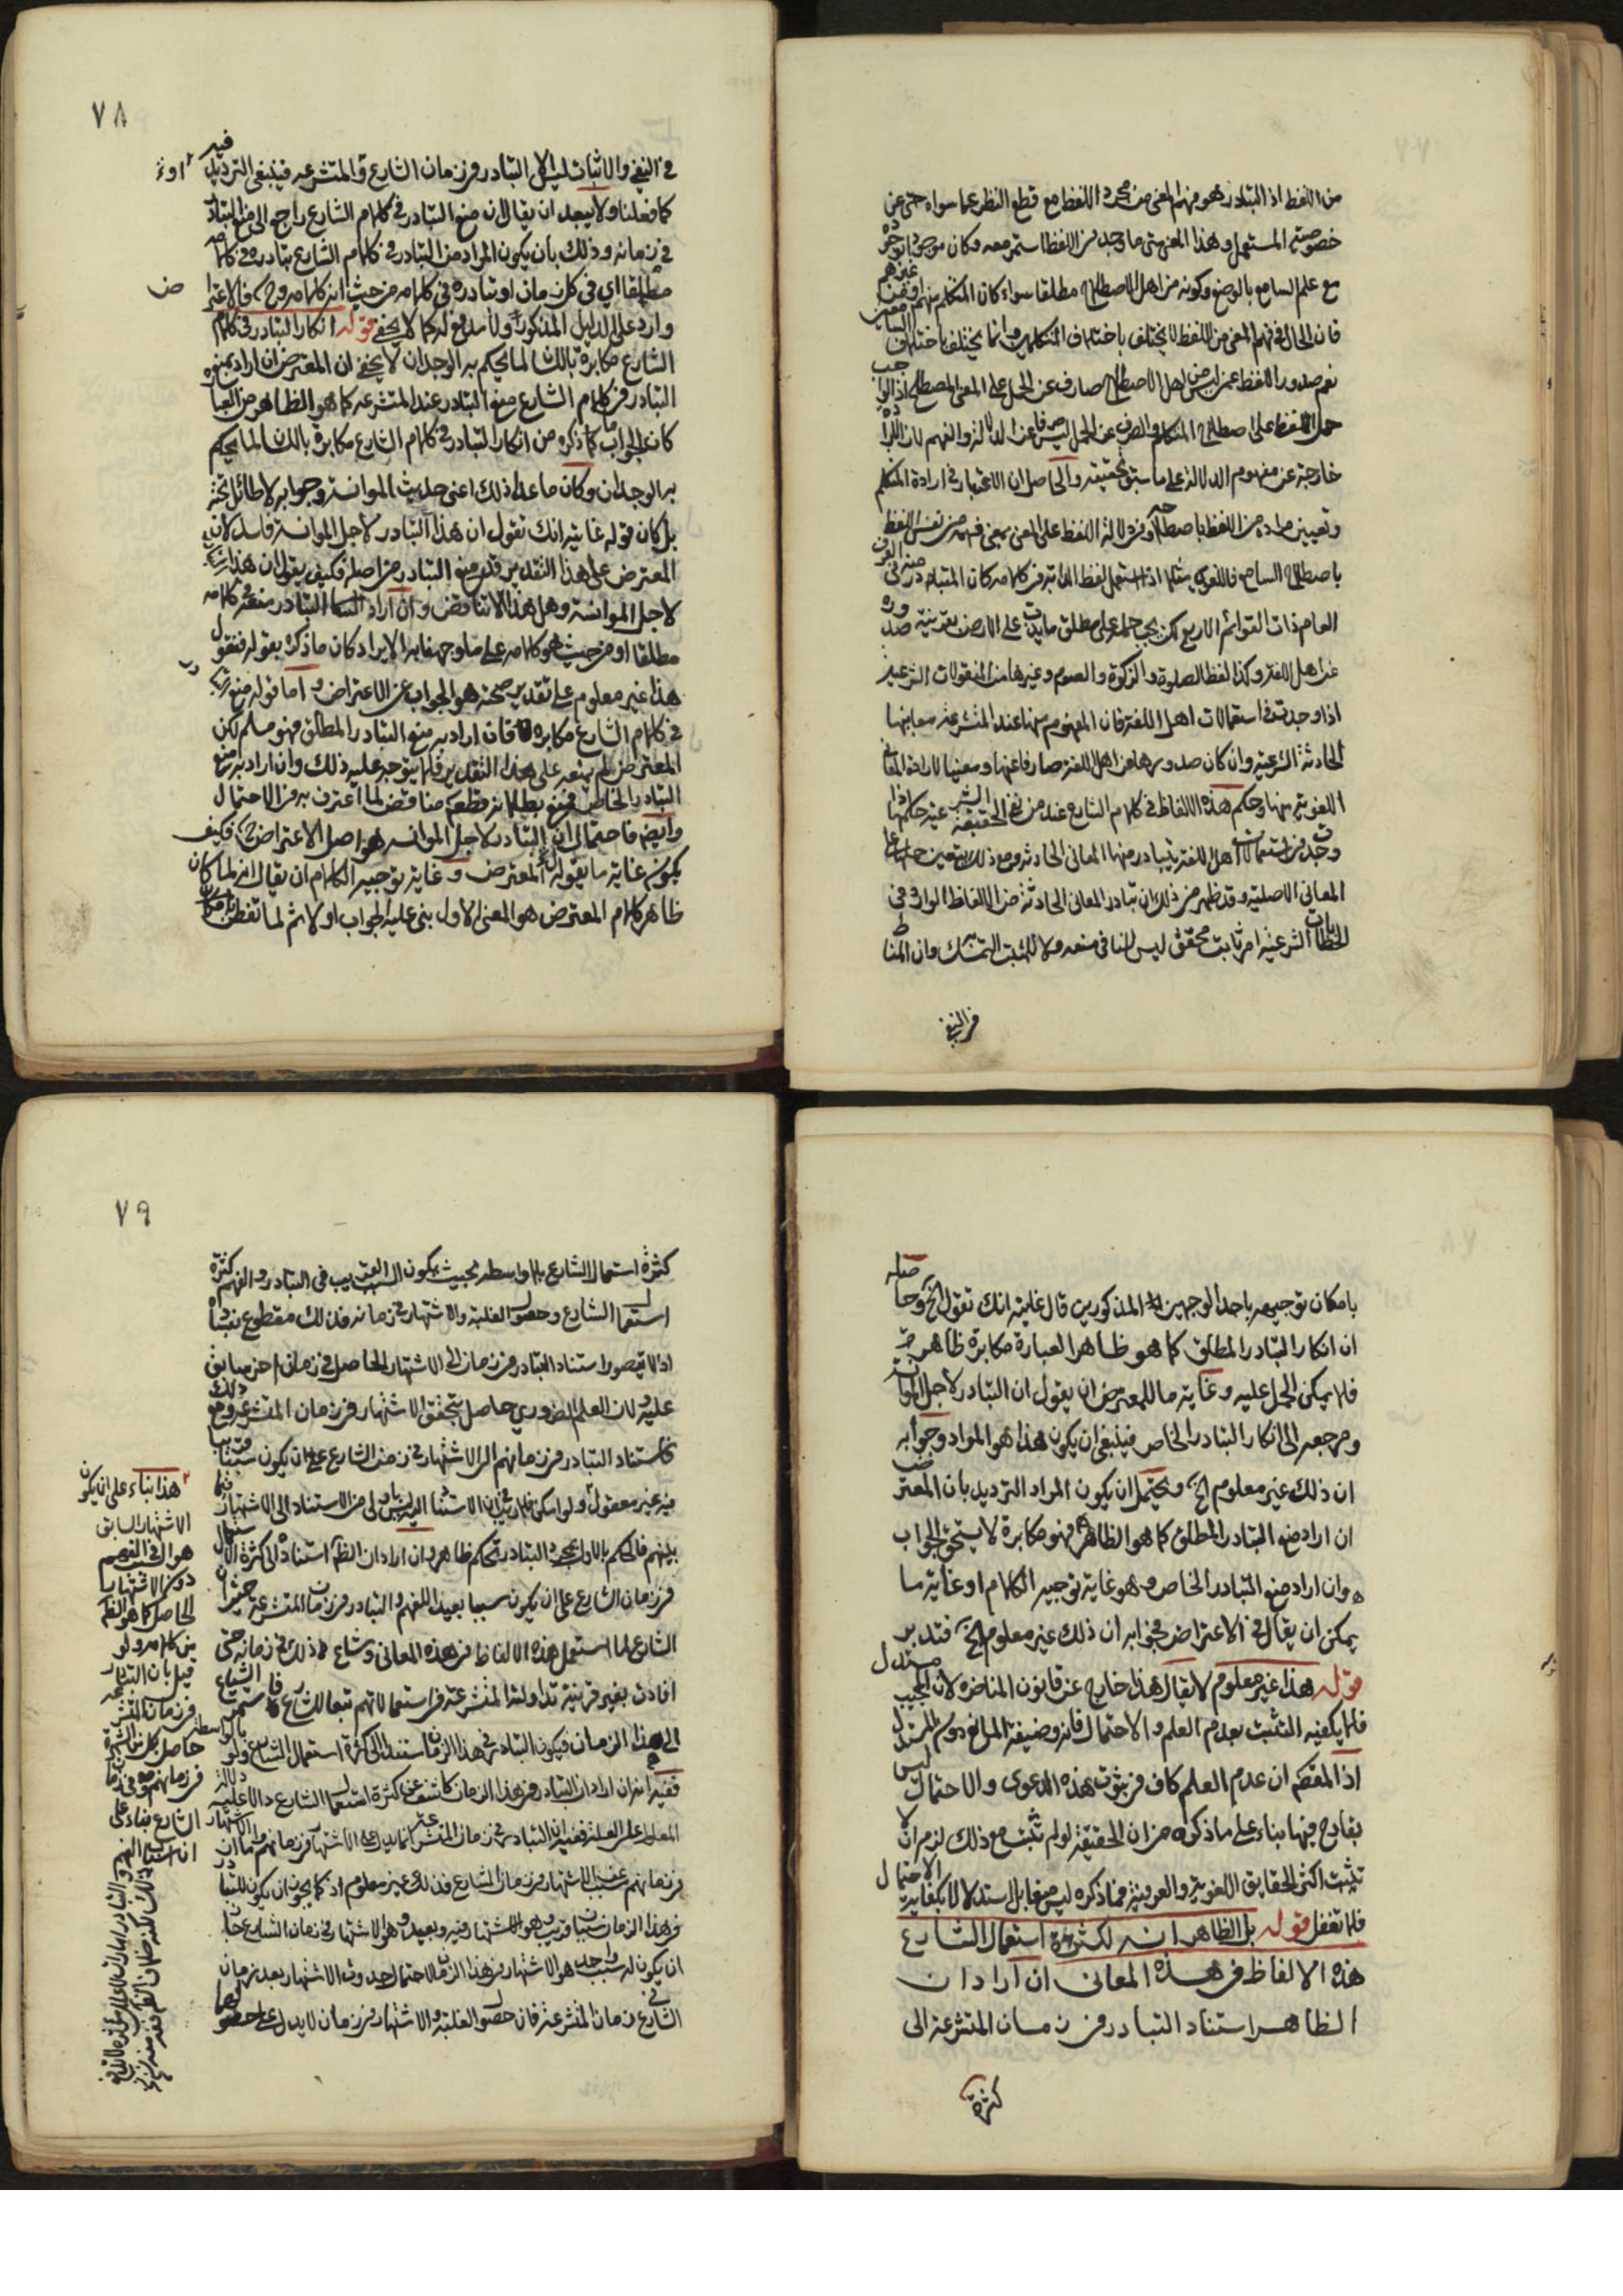 من اللفظ اذ التبادر هو فهم المعنى من مجرد اللفظ مع قطع النظر عما سواه حتى عن
خصوصية المستعمل وهذا المعنى متى ما وجد من اللفظ استمر معه وكان موجودا
مع علم السامع بالوضع وكونه من اهل الاصطلاح مطلقا سواء كان المتكلم منهم او من غيرهم
فان الحال في فهم المعنى من اللفظ لا يختلف باختلاف المتكلمين وانما يختلف باختلاف
نعم صدور اللفظ عمن ليس من اهل الاصطلاح صارف عن الحمل على المعنى المصطلح اذ الواجب
حمل اللفظ على اصطلاح المتكلم والصرف عن الحمل ليس صرفا عن الدلالة والفهم لان الارادة
خارجة عن مفهوم الدلالة على ما سبق تحقيقه والحاصل ان الاعتبار في ارادة المتكلم
وتعيين مراده من اللفظ باصطلاحه وفي دلالة اللفظ على المعنى بمعنى فهمه من نفس اللفظ
باصطلاح السامع فاللغوي مثلا اذا استعمل لفظ الدابة في كلامه كان المتبادر منه في العرف
العام ذات القوائم الاربع لكن يجب حمله على مطلق ما يدب على الارض بقرينة صدوره
عن اهل اللغة وكذا لفظ الصلوة والزكوة والصوم وغيرها من المنقولات الشرعية
اذا وجدت في استعمالات اهل اللغة فان المفهوم منها عند المتشرعة معانيها
الحادثة الشرعية وان كان صدورها عن اهل اللغة صارفا عنها ومعينا لارادة المعاني
اللغوية منها وحكم هذه الالفاظ في كلام الشارع عند من نفى الحقيقة الشرعية حكمها اذا
وجدت في استعمالات اهل اللغة يتبادر منها المعاني الحادثة ومع ذلك يتعين حملها على
المعاني الاصلية وقد ظهر من ذلك ان تبادر المعاني الحادثة من الالفاظ الواردة في
الخطابات الشرعية امر ثابت محقق ليس للنافي منعه ولا للمثبت التمسك به وان المناط
في النفي
٧٨
في النفي والاثبات ليس الا التبادر في زمان الشارع والمتشرعة فينبغي الترديد فيه
كما فعلنا ولا يبعد ان يقال ان منع التبادر في كلام الشارع راجع الى منع التبادر
في زمانه وذلك بان يكون المراد من التبادر في كلام الشارع تبادره في كلامه
مطلقا اي في كل زمان او تبادره في كلامه من حيث انه كلامه وح فالاعتراض
وارد على الدليل المذكور ولا مدفع له كما لا يخفى قوله انكار التبادر في كلام
الشارع مكابرة باللسان لما يحكم به الوجدان لا يخفى ان المعترض ان اراد بمنع
التبادر في كلام الشارع منع التبادر عند المتشرعة كما هو الظاهر من العبارة
كان الجواب ما ذكره من انكار التبادر في كلام الشارع مكابرة باللسان لما يحكم
به الوجدان وكان ما عدا ذلك اعني حديث الموانسة وجوابه لا طائل تحته
بل كان قوله غايته انك تقول ان هذا التبادر لاجل الموانسة فاسد لان
المعترض على هذا التقدير قد منع التبادر من اصله فكيف يقول ان هذا التبادر
لاجل الموانسة وهل هذا الا تناقض وان اراد التبادر منع في كلامه
مطلقا او من حيث هو كلامه على ما وجهنا به الايراد كان ما ذكره بقوله فنقول
هذا غير معلوم على تقدير صحته هو الجواب عن الاعتراض واما قوله منع التبادر
في كلام الشارع مكابرة فان اراد به منع التبادر المطلق فهو مسلم لكن
المعترض لم يمنعه على هذا التقدير فلا يتوجه عليه ذلك وان اراد به منع
التبادر الخاص فهو بطلانه قطعا مناقض لما اعترف به من الاحتمال
وايضا فاحتمال ان التبادر لاجل الموانسة هو اصل الاعتراض ح فكيف
يكون غاية ما يقوله المعترض وغاية توجيه الكلام ان يقال انه لما كان
ظاهر كلام المعترض هو المعنى الاول بنى عليه الجواب اولا ثم لما تفطن
بامكان توجيهه باحد الوجهين المذكورين قال غايته انك تقول الخ وحاصله
ان انكار التبادر المطلق كما هو ظاهر العبارة مكابرة ظاهرة
فلا يمكن الحمل عليه وغاية ما للمعترض ان يقول ان التبادر لاجل الموانسة
ومرجعه الى انكار التبادر الخاص فينبغي ان يكون هذا هو المراد وجوابه
ان ذلك غير معلوم الخ ويحتمل ان يكون المراد الترديد بان المعترض
ان اراد منع التبادر المطلق كما هو الظاهر فهو مكابرة لا يستحق الجواب
وان اراد منع التبادر الخاص وهو غاية توجيه الكلام او غاية ما
يمكن ان يقال في الاعتراض فجوابه ان ذلك غير معلوم الخ فتدبر
قوله هذا غير معلوم لا يقال هذا خارج عن قانون المناظرة لان المجيب مستدل
فلا يكفيه التشبث بعدم العلم والاحتمال فانه وظيفة المانع دون المستدل
اذ المفهم ان عدم العلم كاف في ثبوت هذه الدعوى والاحتمال ليس
بقادح فيها بناء على ما ذكره من ان الحقيقة لو لم تثبت مع ذلك لزم ان لا
تثبت اكثر الحقايق اللغوية والعرفية فما ذكره ليس مقابل الاستدلال
فلا تغفل قوله بل الظاهر انه لكثرة استعمال الشارع
هذه الالفاظ في هذه المعاني ان اراد ان
الظاهر استناد التبادر في زمان المتشرعة الى
كثرة
٧٩
كثرة استعمال الشارع بلا واسطة بحيث يكون السبب القريب في التبادر والفهم كثرة
استعمال الشارع وحصول الغلبة والاشتهار في زمانه فذلك مقطوع
اذ لا يتصور استناد التبادر في زمان الى الاشتهار الحاصل في زمان اخر سابق
عليه ولان العلم الضروري حاصل بتحقق الاشتهار في زمان المتشرعة ومع ذلك
فاستناد التبادر في زمانهم الى الاشتهار في زمن الشارع على ان يكون سببا قريبا
فيه غير معقول
بينهم فالحكم بالاول تحكم ظاهر وان اراد ان الظاهر استناده الى كثرة الاستعمال
في زمان الشارع على ان يكون سببا بعيدا للفهم والتبادر في زمان المتشرعة
الشارع لما استعمل هذه الالفاظ في هذه المعاني وشاع ذلك في زمانه حتى
افادت بغير قرينة تداولته المتشرعة في استعمالاتهم تبعا للشارع
الى هذا الزمان فيكون التبادر في هذا الزمان مستندا الى كثرة استعمال الشارع ولو بالواسطة
ففيه انه ان اراد ان التبادر في هذا الزمان كاشف عن كثرة استعمال الشارع
المعلول على العلة ففيه ان التبادر في زمان المتشرعة انما يدل على الاشتهار في زمانهم واما ان
في زمانهم سبب الاشتهار في زمان الشارع فذلك غير معلوم اذ كما يجوز ان يكون للتبادر
في هذا الزمان سببا قريب وهو الاشتهار فيه وبعيد وهو الاشتهار في زمان الشارع جاز
ان يكون له سبب واحد هو الاشتهار في هذا الزمان لاحتمال حدوث الاشتهار بعد زمان
الشارع في زمان المتشرعة فان حصول الغلبة والاشتهار في زمان لا يدل على حصولهما
هذا بناء على ان يكون
الاشتهار السابق
هو السبب
دون الاشتهار
الحاصل كما هو الظاهر
من كلامه ولو
قيل بان التبادر
في زمان المتشرعة
حاصل بكل من الشهرة